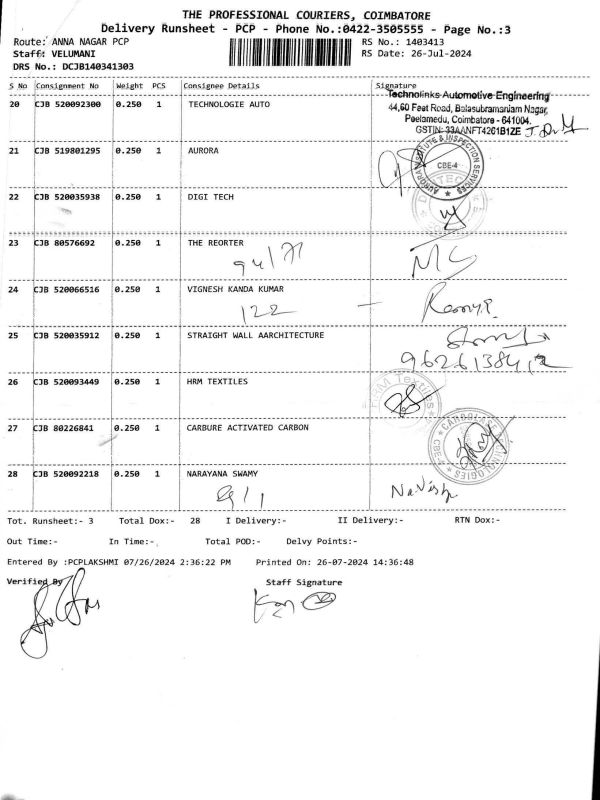 THE PROFESSIONAL COURIERS, COIMBATORE
Delivery Runsheet - PCP - Phone No.:0422-3505555 - Page No.:3
Route: ANNA NAGAR PCP RS No.: 1403413
Staff: VELUMANI RS Date: 26-Jul-2024
DRS No.: DCJB140341303
S No Consignment No Weight PCS Consignee Details Signature
20 CJB 520092300 0.250 1 TECHNOLOGIE AUTO
Technolinks Automotive Engineering
44,60 Feet Road, Balasubramaniam Nagar,
Peelamedu, Coimbatore - 641004.
GSTIN: 33AANFT4201B1ZE
21 CJB 519801295 0.250 1 AURORA
CBE-4
22 CJB 520035938 0.250 1 DIGI TECH
23 CJB 80576692 0.250 1 THE REORTER
94/71
24 CJB 520066516 0.250 1 VIGNESH KANDA KUMAR
122 -
25 CJB 520035912 0.250 1 STRAIGHT WALL AARCHITECTURE
26 CJB 520093449 0.250 1 HRM TEXTILES
HRM Textiles
27 CJB 80226841 0.250 1 CARBURE ACTIVATED CARBON
28 CJB 520092218 0.250 1 NARAYANA SWAMY
Tot. Runsheet:- 3 Total Dox:- 28 I Delivery:- II Delivery:- RTN Dox:-
Out Time:- In Time:- Total POD:- Delvy Points:-
Entered By :PCPLAKSHMI 07/26/2024 2:36:22 PM Printed On: 26-07-2024 14:36:48
Verified By Staff Signature